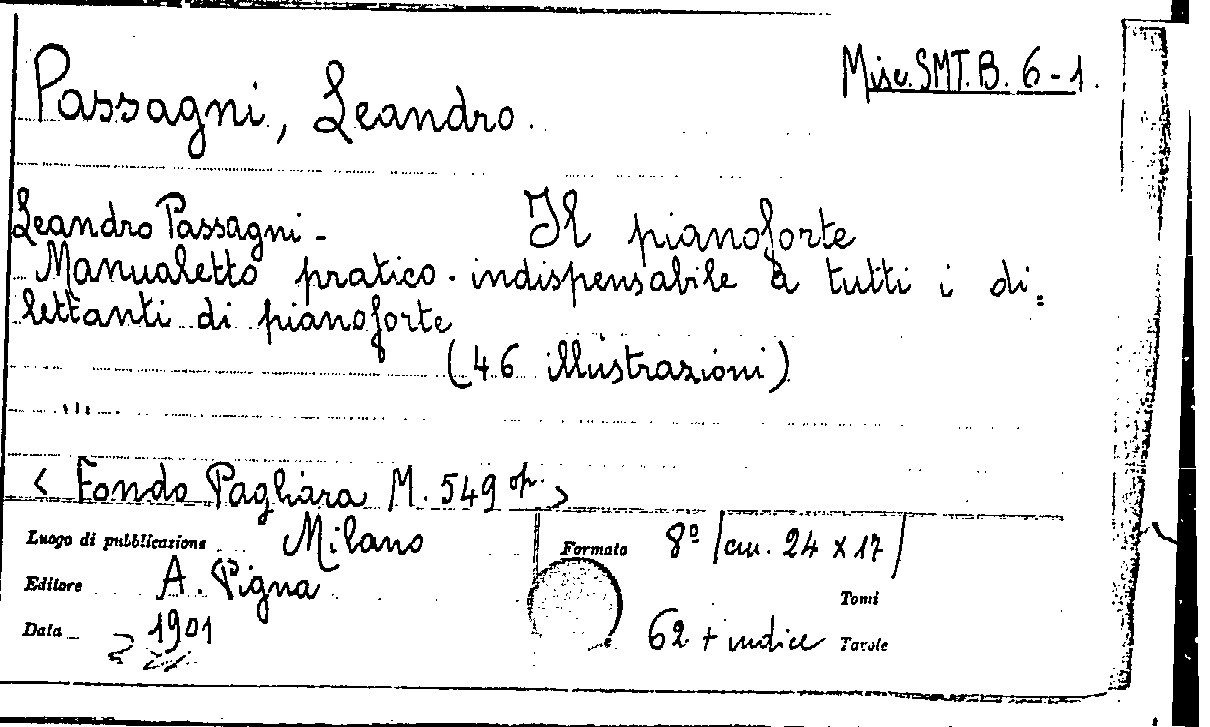 Misc. SMT. B. 6-1.
Passagni, Leandro.
Leandro Passagni - Il pianoforte
Manualetto pratico - indispensabile a tutti i di=
lettanti di pianoforte
(46 illustrazioni)
< Fondo Pagliara M. 549 op. >
Luogo di pubblicazione Milano Formato 8º / cm. 24 x 17 /
Editore A. Pigna Tomi
Data 1901 62 + indice Tavole